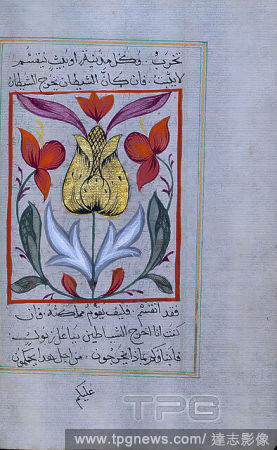 تخرب. وكل مدينة او بيت ينقسم
لا يثبت. فان كان الشيطان يخرج الشيطان
فقد انقسم. فكيف يقوم مملكته. فان
كنت انا اخرج الشياطين بباعلزبوب
فابناوكم بماذا يخرجون. من اجل هذا يحكمون
عليكم
TPG
www.tpgnews.com / 達志影像